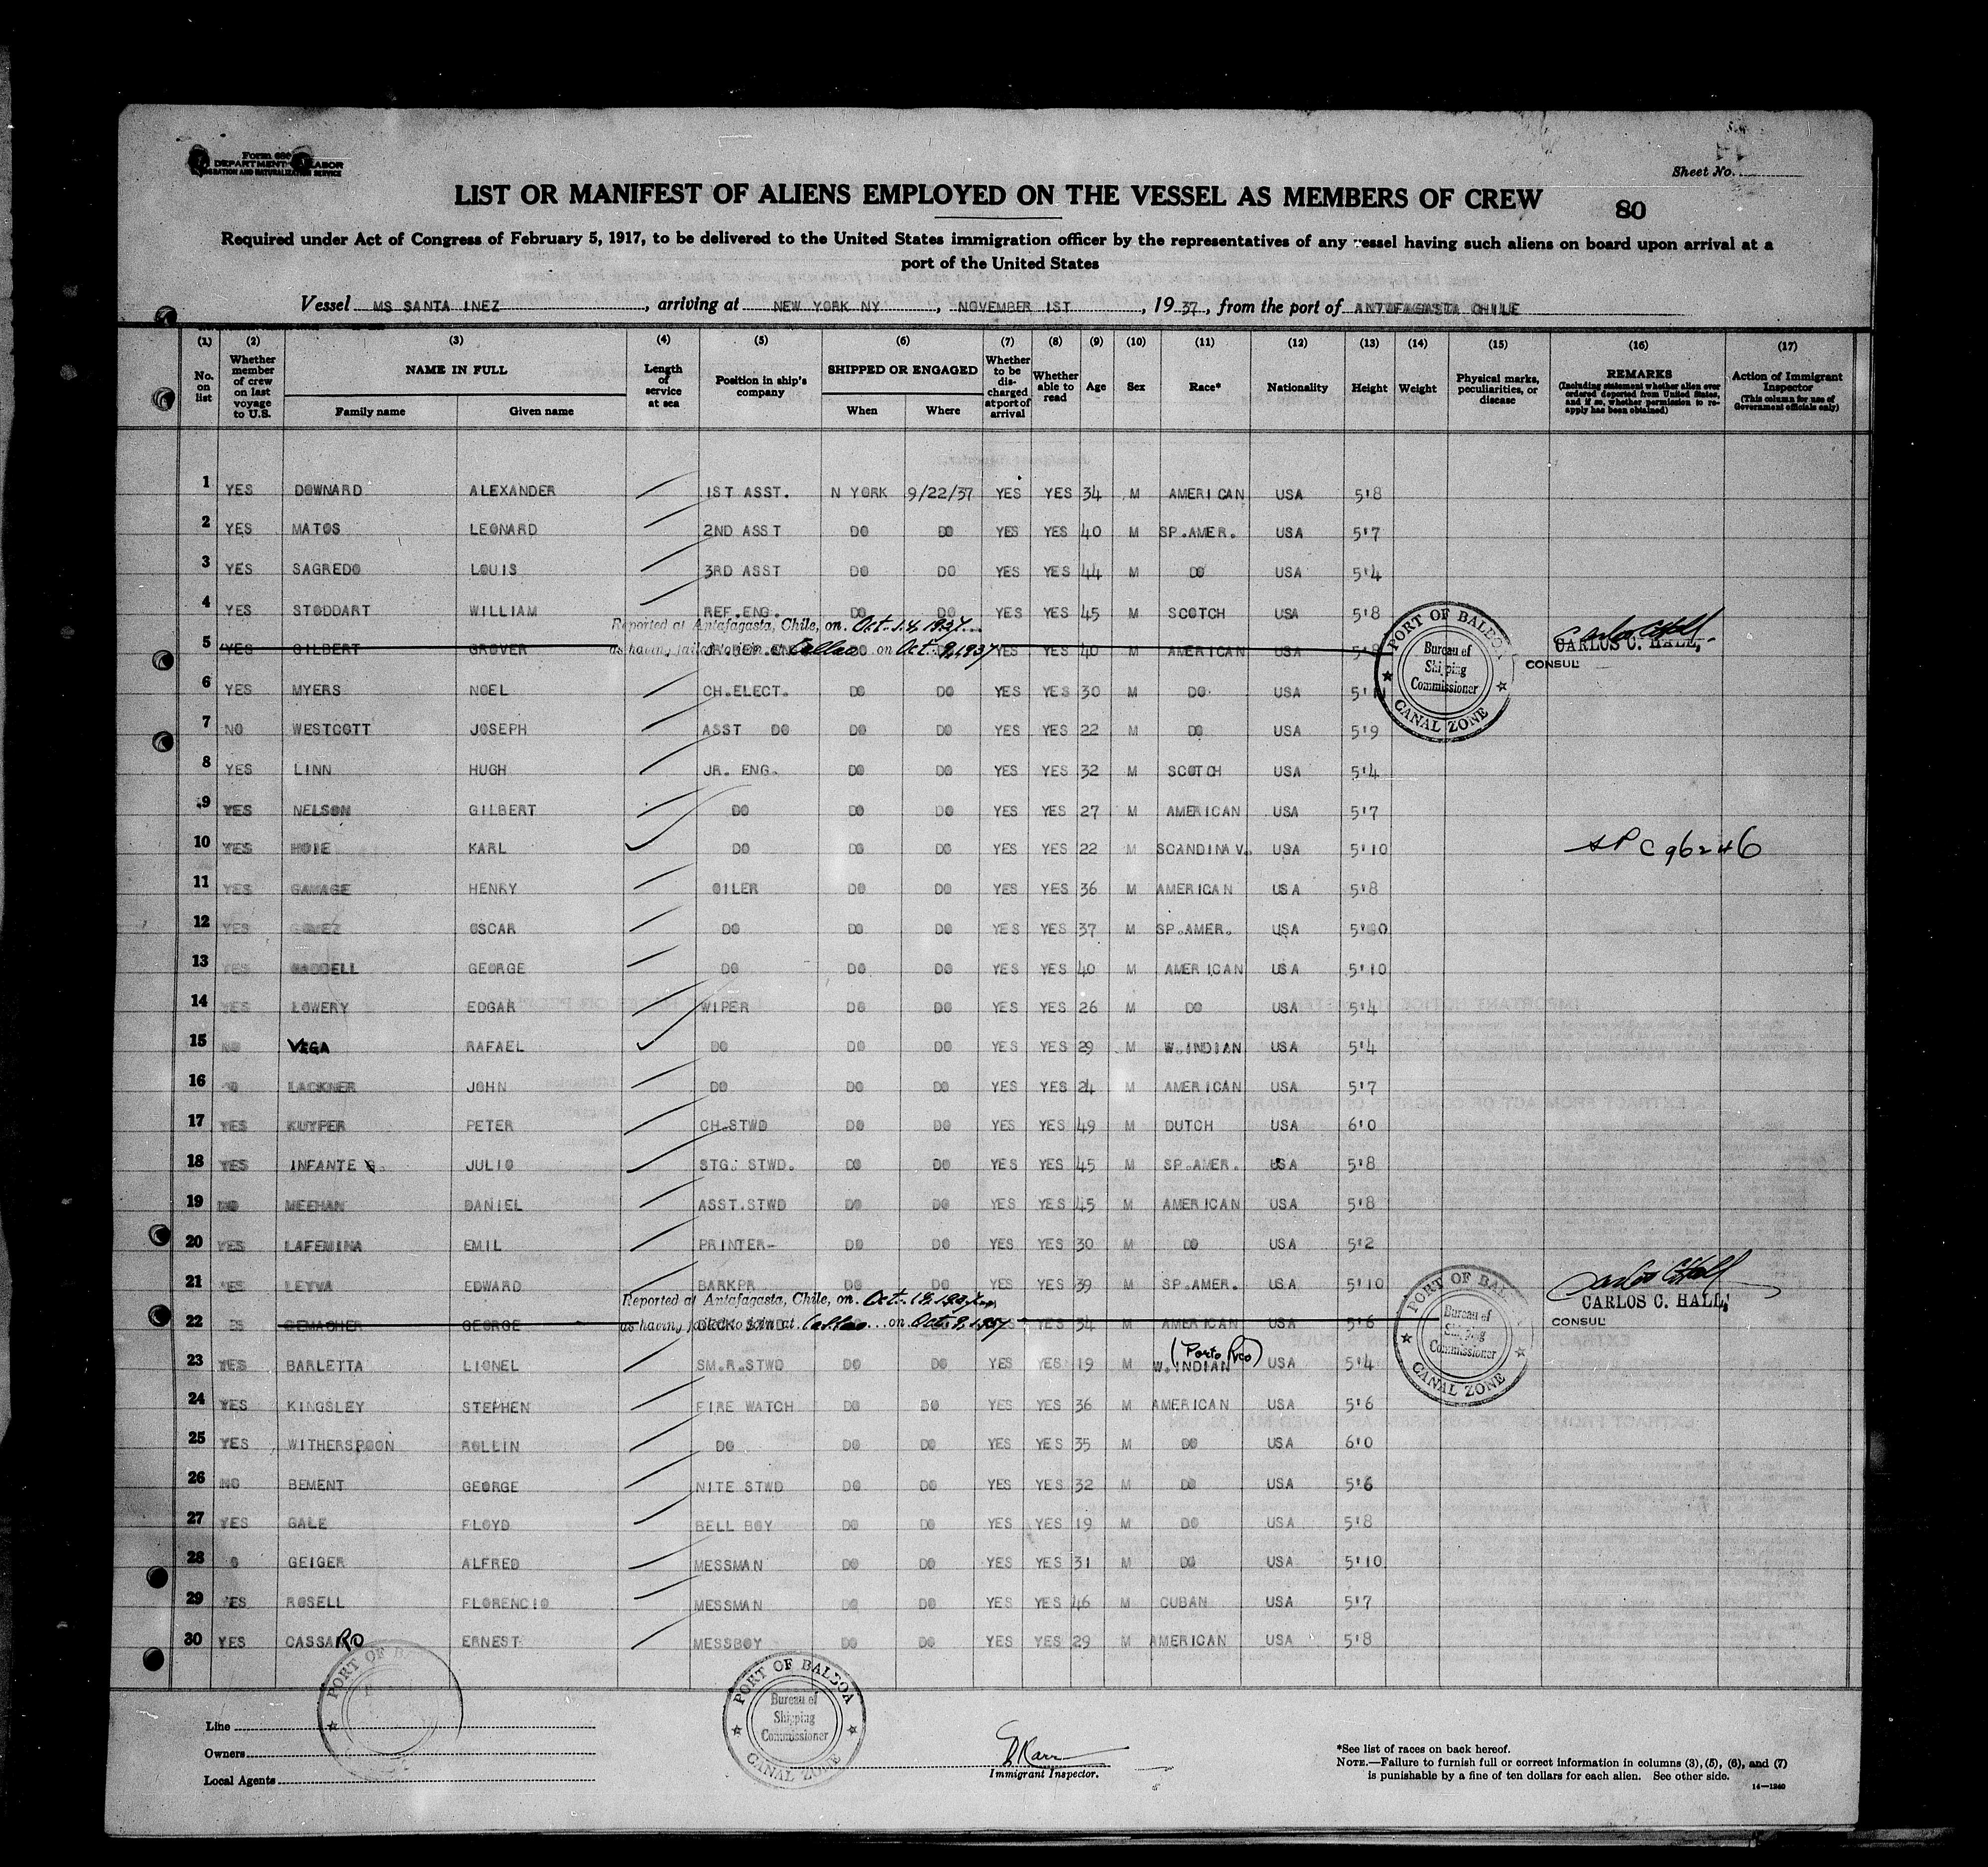 Form 680
DEPARTMENT LABOR
IMMIGRATION AND NATURALIZATION SERVICE
Sheet No.
LIST OR MANIFEST OF ALIENS EMPLOYED ON THE VESSEL AS MEMBERS OF CREW
80
Required under Act of Congress of February 5, 1917, to be delivered to the United States immigration officer by the representatives of any vessel having such aliens on board upon arrival at a
port of the United States
Vessel MS SANTA INEZ, arriving at NEW YORK NY, NOVEMBER 1ST, 1937, from the port of ANTOFAGASTA CHILE
(1) (2) (3) (4) (5) (6) (7) (8) (9) (10) (11) (12) (13) (14) (15) (16) (17)
No. on list
Whether member of crew on last voyage to U.S.
NAME IN FULL
Family name
Given name
Length of service at sea
Position in ship's company
SHIPPED OR ENGAGED
When
Where
Whether to be discharged at port of arrival
Whether able to read
Age
Sex
Race*
Nationality
Height
Weight
Physical marks, peculiarities, or disease
REMARKS
(Including statement whether alien ever ordered deported from United States, and if so, whether permission to reapply has been obtained)
Action of Immigrant Inspector
(This column for use of Government officials only)
1 YES DOWNARD ALEXANDER 1ST ASST. N YORK 9/22/37 YES YES 34 M AMERICAN USA 5'8
2 YES MATOS LEONARD 2ND ASST DO DO YES YES 40 M SP.AMER. USA 5'7
3 YES SAGREDO LOUIS 3RD ASST DO DO YES YES 44 M DO USA 5'4
4 YES STODDART WILLIAM REF.ENG. DO DO YES YES 45 M SCOTCH USA 5'8
Reported at Antafagasta, Chile, on Oct. 14, 1937
5 YES GILBERT GROVER as having failed to join at Callao on Oct. 9, 1937 YES YES 40 M AMERICAN USA
CARLOS C. HALL,
CONSUL
PORT OF BALBOA
Bureau of
Shipping
Commissioner
CANAL ZONE
6 YES MYERS NOEL CH.ELECT. DO DO YES YES 30 M DO USA
7 NO WESTCOTT JOSEPH ASST DO DO DO YES YES 22 M DO USA 5'9
8 YES LINN HUGH JR. ENG. DO DO YES YES 32 M SCOTCH USA 5'4
9 YES NELSON GILBERT DO DO DO YES YES 27 M AMERICAN USA 5'7
10 YES HOIE KARL DO DO DO YES YES 22 M SCANDINAV. USA 5'10 C 96246
11 YES GAMAGE HENRY OILER DO DO YES YES 36 M AMERICAN USA 5'8
12 YES GOMEZ OSCAR DO DO DO YES YES 37 M SP.AMER. USA
13 YES WADDELL GEORGE DO DO DO YES YES 40 M AMERICAN USA 5'10
14 YES LOWERY EDGAR WIPER DO DO YES YES 26 M DO USA 5'4
15 NO VEGA RAFAEL DO DO DO YES YES 29 M W.INDIAN USA 5'4
16 NO LACKNER JOHN DO DO DO YES YES 24 M AMERICAN USA 5'7
17 YES KUYPER PETER CH.STWD DO DO YES YES 49 M DUTCH USA 6'0
18 YES INFANTE G. JULIO STG. STWD. DO DO YES YES 45 M SP.AMER. USA 5'8
19 NO MEEHAN DANIEL ASST.STWD DO DO YES YES 45 M AMERICAN USA 5'8
20 YES LAFEMINA EMIL PRINTER- DO DO YES YES 30 M DO USA 5'2
21 YES LEYVA EDWARD BARKPR DO DO YES YES 39 M SP.AMER. USA 5'10
Reported at Antafagasta, Chile, on Oct. 18, 1937
22 GEMACHER GEORGE as having failed to join at Callao on Oct. 9, 1937 YES 34 M AMERICAN USA 5'6
CARLOS C. HALL,
CONSUL
PORT OF BALBOA
Bureau of
Shipping
Commissioner
CANAL ZONE
(Porto Rico)
23 YES BARLETTA LIONEL SM.R.STWD DO DO YES YES 19 M W.INDIAN USA 5'4
24 YES KINGSLEY STEPHEN FIRE WATCH DO DO YES YES 36 M AMERICAN USA 5'6
25 YES WITHERSPOON ROLLIN DO DO DO YES YES 35 M DO USA 6'0
26 NO BEMENT GEORGE NITE STWD DO DO YES YES 32 M DO USA 5'6
27 YES GALE FLOYD BELL BOY DO DO YES YES 19 M DO USA 5'8
28 GEIGER ALFRED MESSMAN DO DO YES YES 31 M DO USA 5'10
29 YES ROSELL FLORENCIO MESSMAN DO DO YES YES 46 M CUBAN USA 5'7
30 YES CASSARO ERNEST MESSBOY DO DO YES YES 29 M AMERICAN USA 5'8
PORT OF BA
PORT OF BALBOA
Bureau of
Shipping
Commissioner
CANAL ZONE
Line
Owners
Local Agents
Immigrant Inspector.
*See list of races on back hereof.
NOTE.—Failure to furnish full or correct information in columns (3), (5), (6), and (7)
is punishable by a fine of ten dollars for each alien. See other side.
14—1240